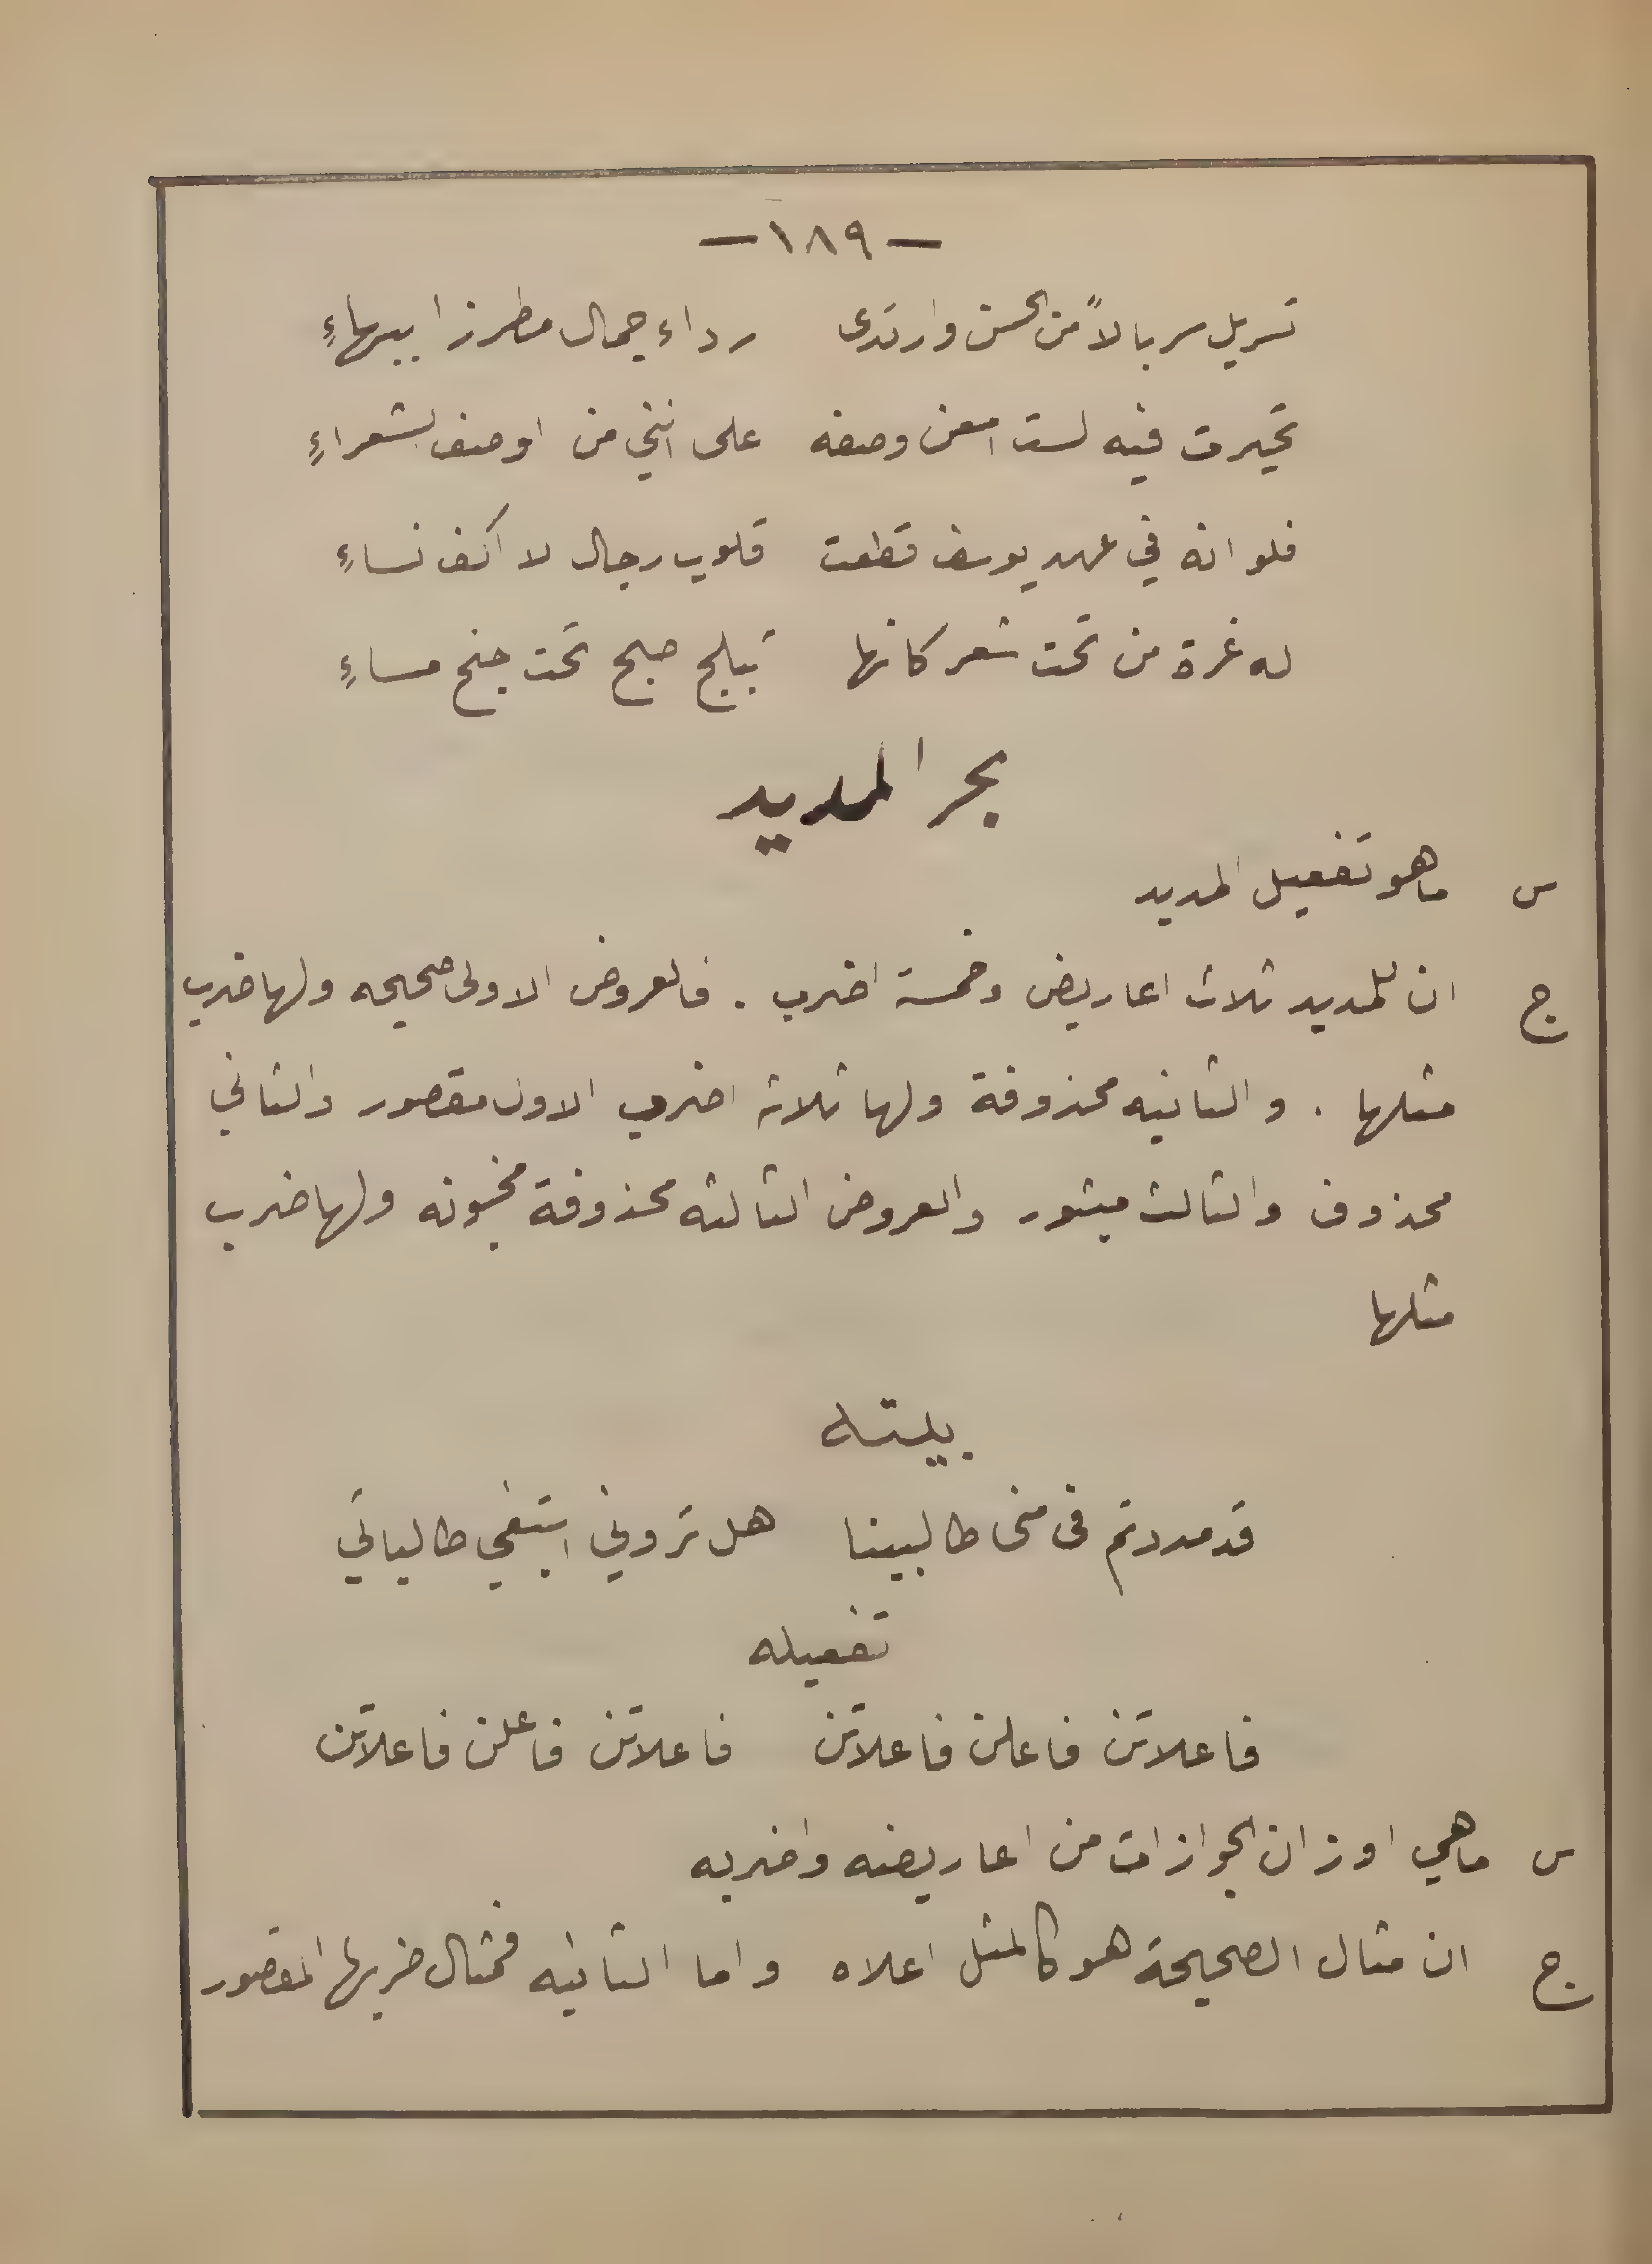 — ١٨٩ —
تسربل سربالاً من الحسن وارتدى رداء جمال مطرزا ببهاءٍ
تحيرت فيه لست امعن وصفه على انني من اوصف لشعراءٍ
فلو انه في عهد يوسف قطعت قلوب رجال لا اكف نساءٍ
له غرة من تحت شعر كانها تبلج صبح تحت جنح مساءٍ
بحر المديد
س ما هو تفعيل المديد
ج ان للمديد ثلاث اعاريض وخمسة اضرب . فالعروض الاولى صحيحه ولها ضرب
مثلها . والثانيه محذوفة ولها ثلاثة اضرب الاول مقصور والثاني
محذوف والثالث مبتور والعروض الثالثه محذوفة مخبونه ولها ضرب
مثلها
بيته
قد مددتم فى منى طالبينا هل تروني ابتغي طالباتي
تفعيله
فاعلاتن فاعلن فاعلاتن فاعلاتن فاعلن فاعلاتن
س ما هي اوزان الجوازات من اعاريضه واضربه
ج ان مثال الصحيحة هو كالمثل اعلاه واما الثانيه فمثال ضربها المقصور